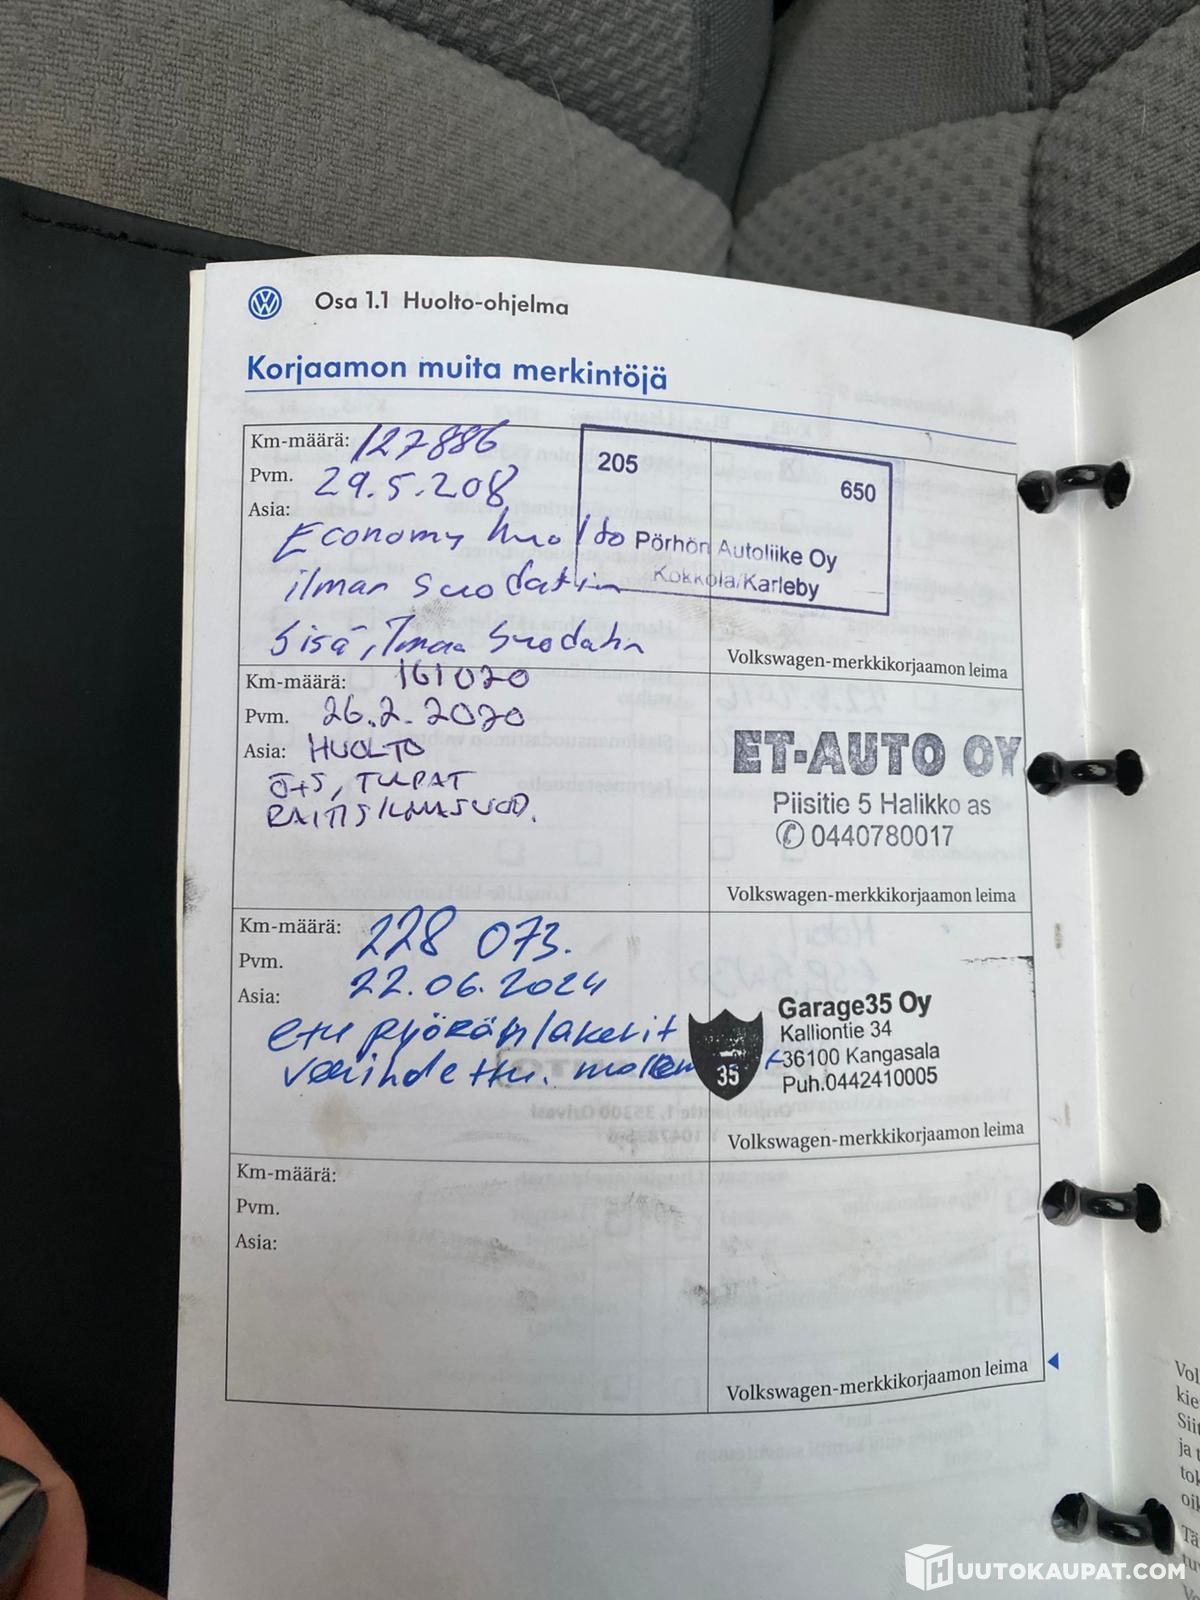 Osa 1.1 Huolto-ohjelma
Korjaamon muita merkintöjä
Km-määrä: 127886
Pvm. 29.5.208
Asia:
Economy huolto
ilman suodatin
Sisä, Ilman Suodatin
205
650
Pörhön Autoliike Oy
Kokkola/Karleby
Volkswagen-merkkikorjaamon leima
Km-määrä: 161020
Pvm. 26.2.2020
Asia: HUOLTO
Ö+S, TULPAT
RAITISILMASUOD.
ET-AUTO OY
Piisitie 5 Halikko as
✆ 0440780017
Volkswagen-merkkikorjaamon leima
Km-määrä: 228 073.
Pvm. 22.06.2024
Asia:
etu pyörän laakerit
vaihdettu.
35
Garage35 Oy
Kalliontie 34
36100 Kangasala
Puh.0442410005
Volkswagen-merkkikorjaamon leima
Km-määrä:
Pvm.
Asia:
Volkswagen-merkkikorjaamon leima
Vol
kie
Siit
ja t
tok
oik
Tä
tuv
HUUTOKAUPAT.COM